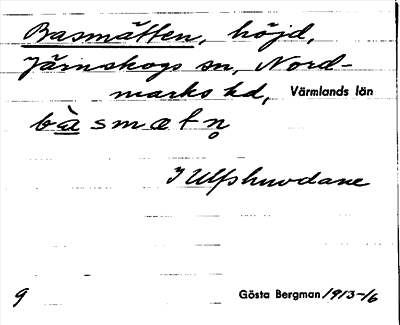 Basmätten, höjd,
Järnskogs sn, Nord-
marks hd, Värmlands län
bàsmætn̥
I Ulfshuvdane
9 Gösta Bergman 1913-16